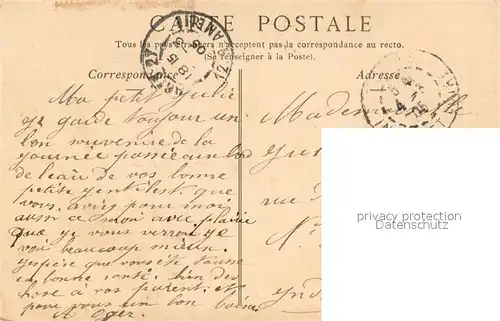 CARTE POSTALE
Tous les pays étrangers n'acceptent pas la correspondance au recto.
(Se renseigner à la Poste).
Correspondance
Adresse
Ma petit Julie
Je garde toujour un
bon souvenire de la
journée passée au bord
de l'eau de vos bonne
petite gentilest que
vous aviez pour moi
aussi ce saoir avec plaisir
que je vous verrou je
voi beaucoup mieux.
J'espère que vous ete tousse
en bonne sonté. bien des
chose a vos parent et
pour vous un bon
A Oger.
Mademoiselle
rue
N.
privacy protection
Datenschutz